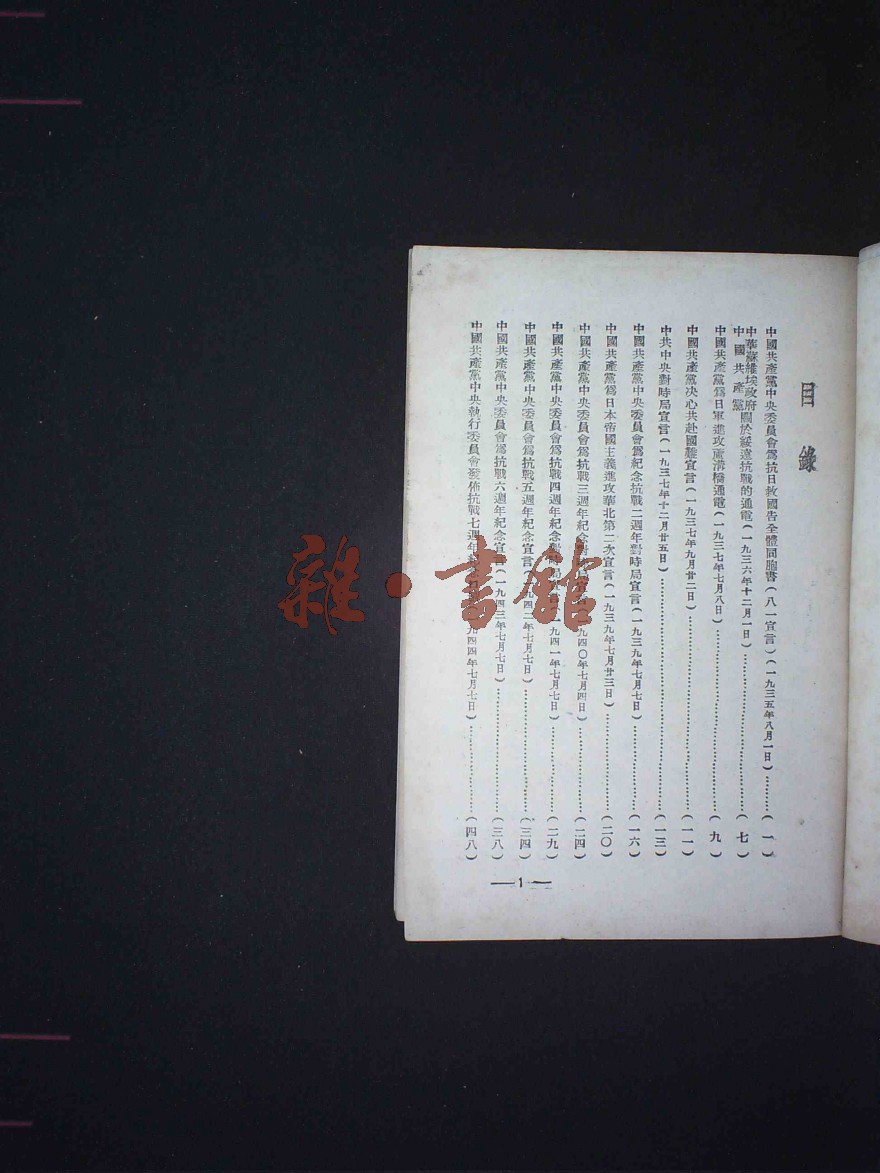 目錄
中國共產黨中央委員會爲抗日救國告全體同胞書(八一宣言)(一九三五年八月一日)…………(一)
中華蘇維埃政府
中國共產黨
關於綏遠抗戰的通電(一九三六年十二月一日)…………(七)
中國共產黨爲日軍進攻盧溝橋通電(一九三七年七月八日)…………(九)
中國共產黨決心共赴國難宣言(一九三七年九月廿二日)…………(一一)
中共中央對時局宣言(一九三七年十二月廿五日)…………(一三)
中國共產黨中央委員會爲紀念抗戰二週年對時局宣言(一九三九年七月七日)…………(一六)
中國共產黨爲日本帝國主義進攻華北第二次宣言(一九三九年七月廿三日)…………(二〇)
中國共產黨中央委員會爲抗戰三週年紀念對時局宣言(一九四〇年七月四日)…………(二四)
中國共產黨中央委員會爲抗戰四週年紀念對時局宣言(一九四一年七月七日)…………(二九)
中國共產黨中央委員會爲抗戰五週年紀念宣言(一九四二年七月七日)…………(三四)
中國共產黨中央委員會爲抗戰六週年紀念宣言(一九四三年七月七日)…………(三八)
中國共產黨中央執行委員會發佈抗戰七週年紀 九四四年七月七日)…………(四八)
—1—
雜·書館